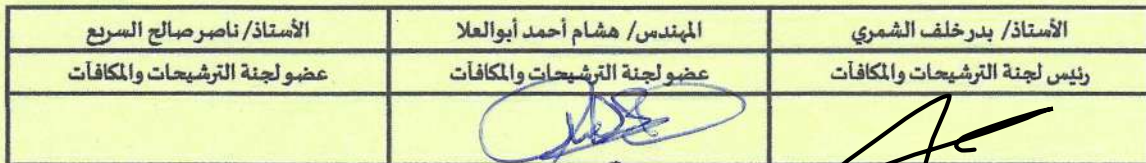 الأستاذ/ بدر خلف الشمري
المهندس/ هشام أحمد أبوالعلا
الأستاذ/ ناصر صالح السريع
رئيس لجنة الترشيحات والمكافآت
عضو لجنة الترشيحات والمكافآت
عضو لجنة الترشيحات والمكافآت